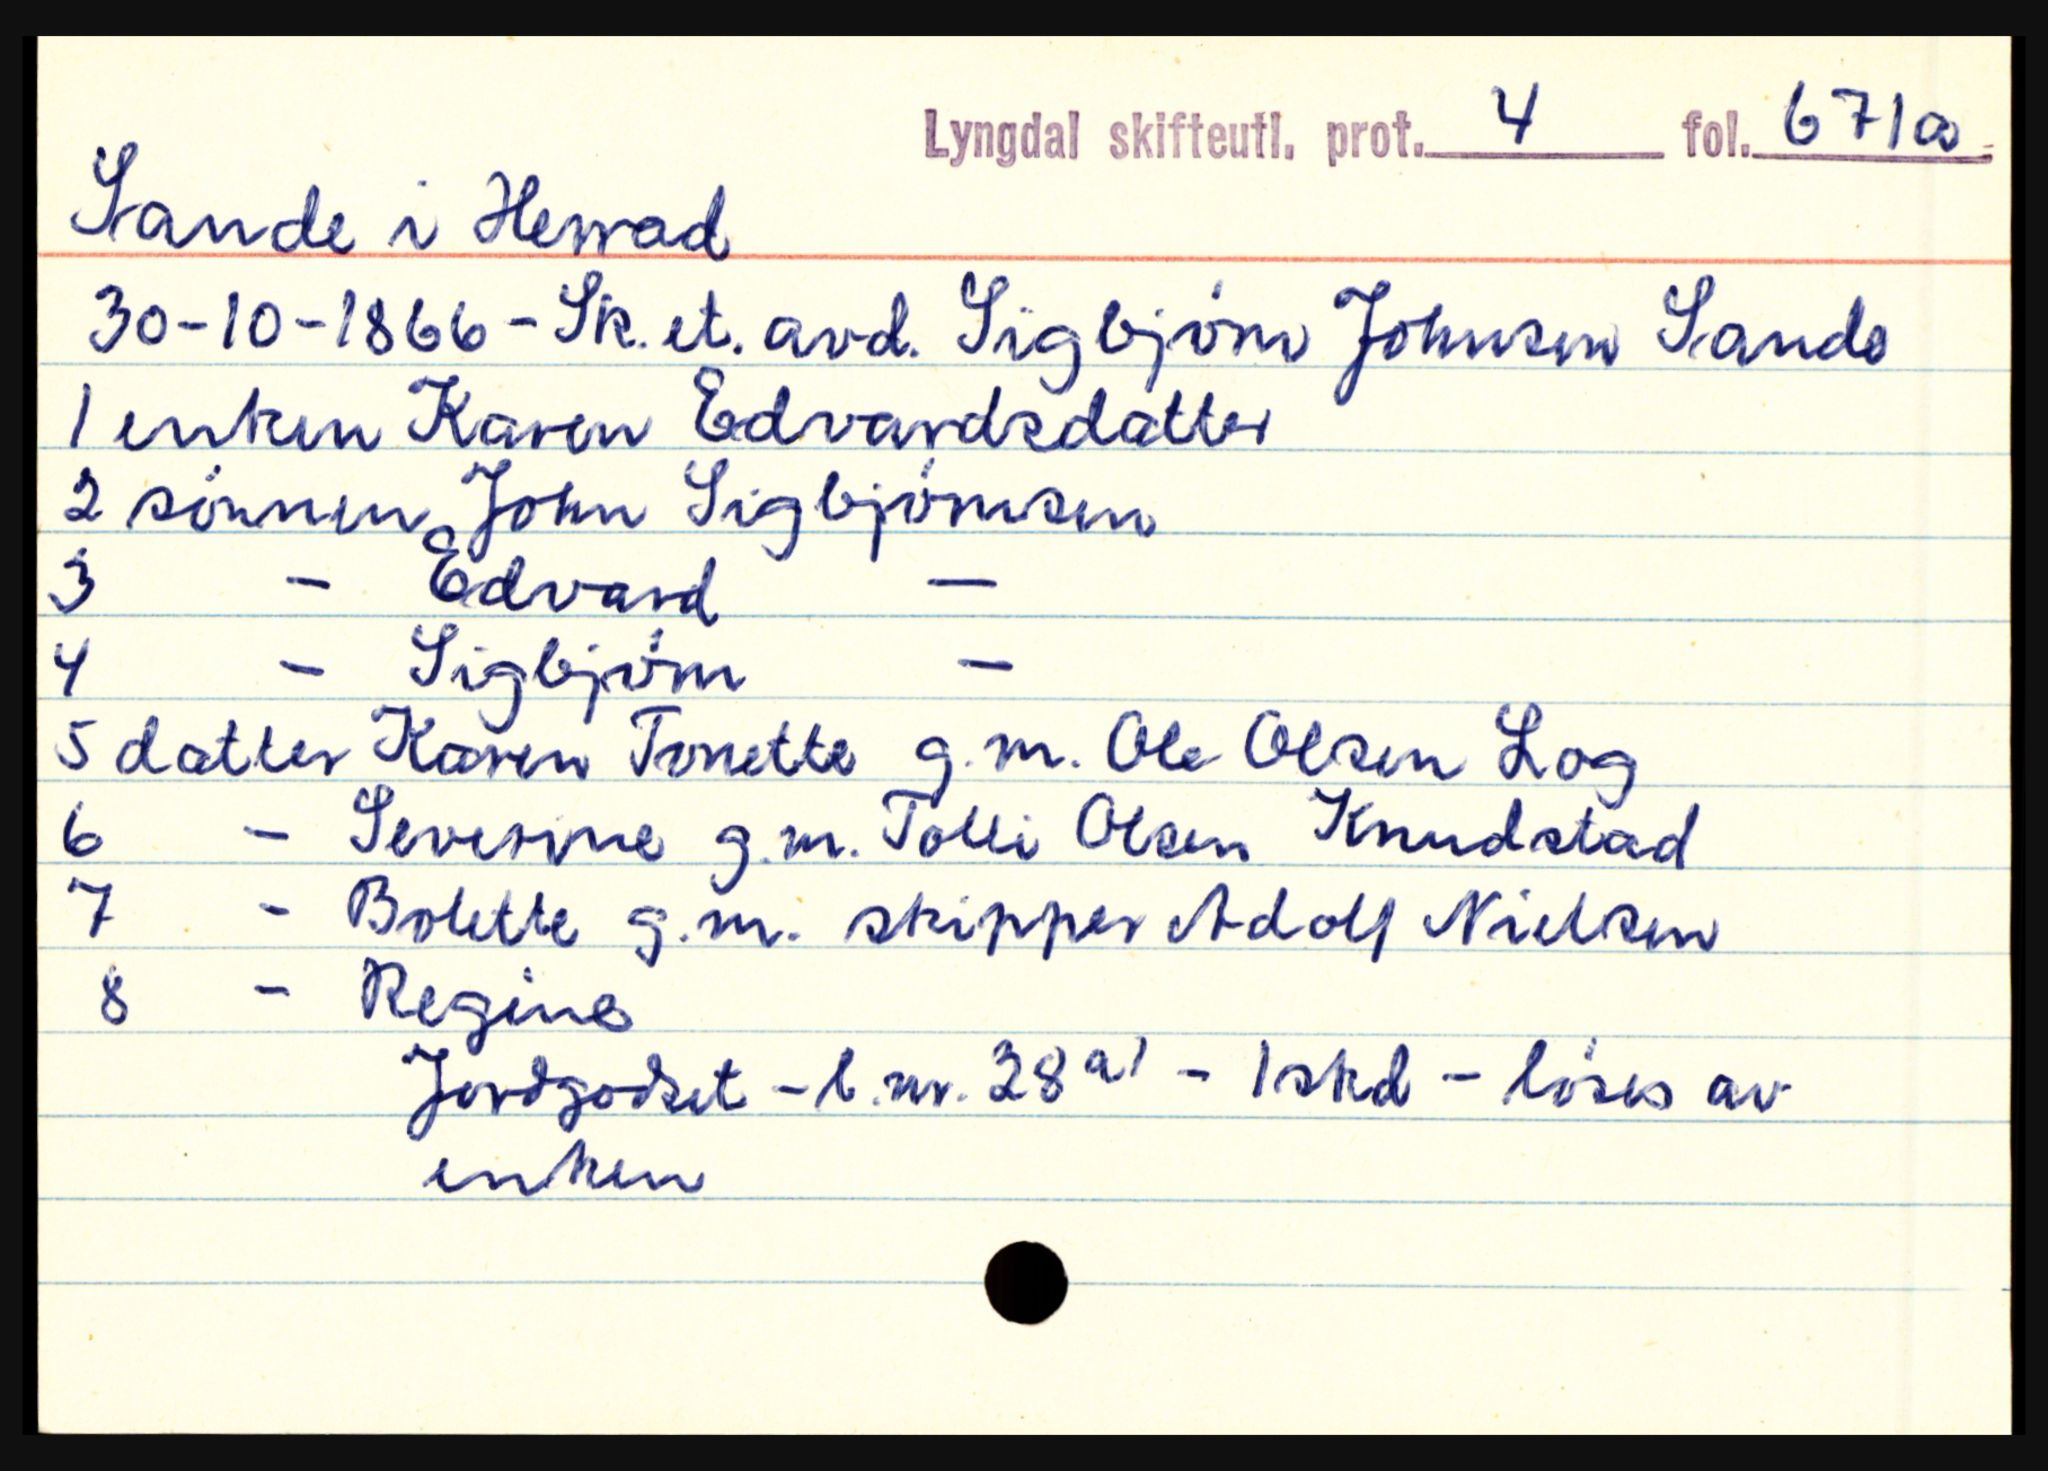 Lyngdal skifteutl. prot. 4 fol. 671a
Sande i Herrad
30-10-1866 - Sk. et. avd. Sigbjørn Johnsen Sande
1 enken Karen Edvardsdatter
2 sønnen John Sigbjørnsen
3 - Edvard -
4 - Sigbjørn -
5 datter Karen Tonette g.m. Ole Olsen Log
6 - Severine g.m. Tolli Olsen Knudstad
7 - Bolette g.m. skipper Adolf Nielsen
8 - Regine
Jordgodset - l.nr. 28 a1 - 1 skd - løses av
enken